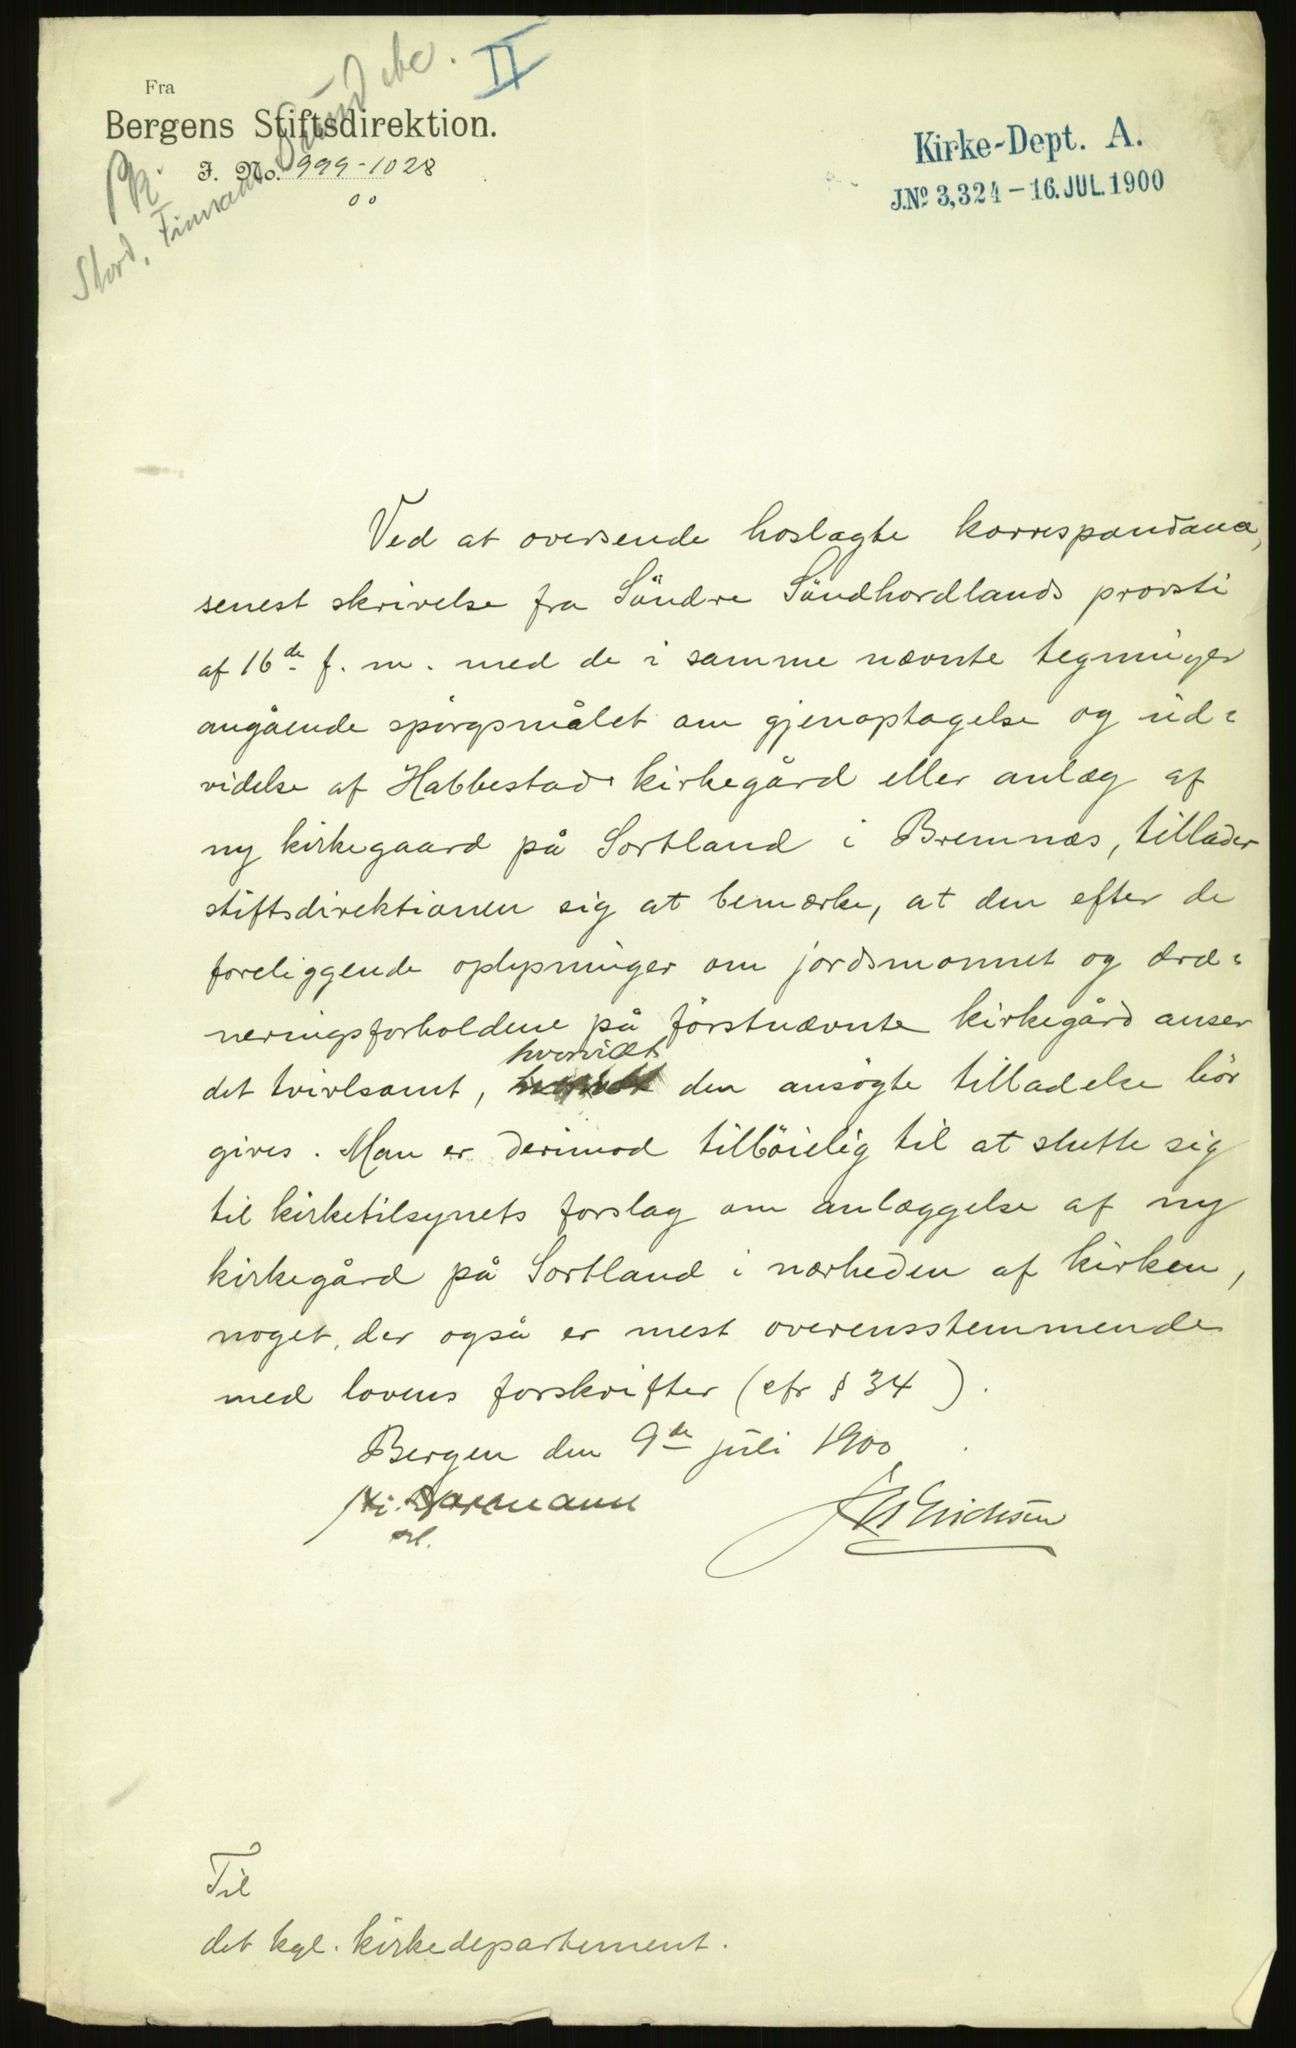 II
Fra
Bergens Stiftsdirektion.
J. No. 999-1028
00
Kirke-Dept. A.
J.Nº 3,324 – 16. JUL. 1900
Stord, Sund etc.
Ved at oversende hoslagte korrespondance,
senest skrivelse fra Söndre Söndhordlands provsti
af 16de f. m. med de i samme nævnte tegninger
angående spörgsmålet om gjenoptagelse og üd-
videlse af Habbestad kirkegård eller anlæg af
ny kirkegaard på Sortland i Bremnæs, tillader
stiftsdirektionen sig at bemærke, at den efter de
foreliggende oplysninger om jordsmonnet og dræ-
neringsforholdene på förstnævnte kirkegård anser
det tvivlsomt, hvorvidt den ansögte tilladelse bör
gives. Man er derimod tilböielig til at slutte sig
til kirketilsynets forslag om anlæggelse af ny
kirkegård på Sortland i nærheden af kirken,
noget, der også er mest overensstemmende
med lovens forskrifter (cfr § 34).
Bergen den 9de jüli 1900
Erichsen
Til
det kgl. kirkedepartement.